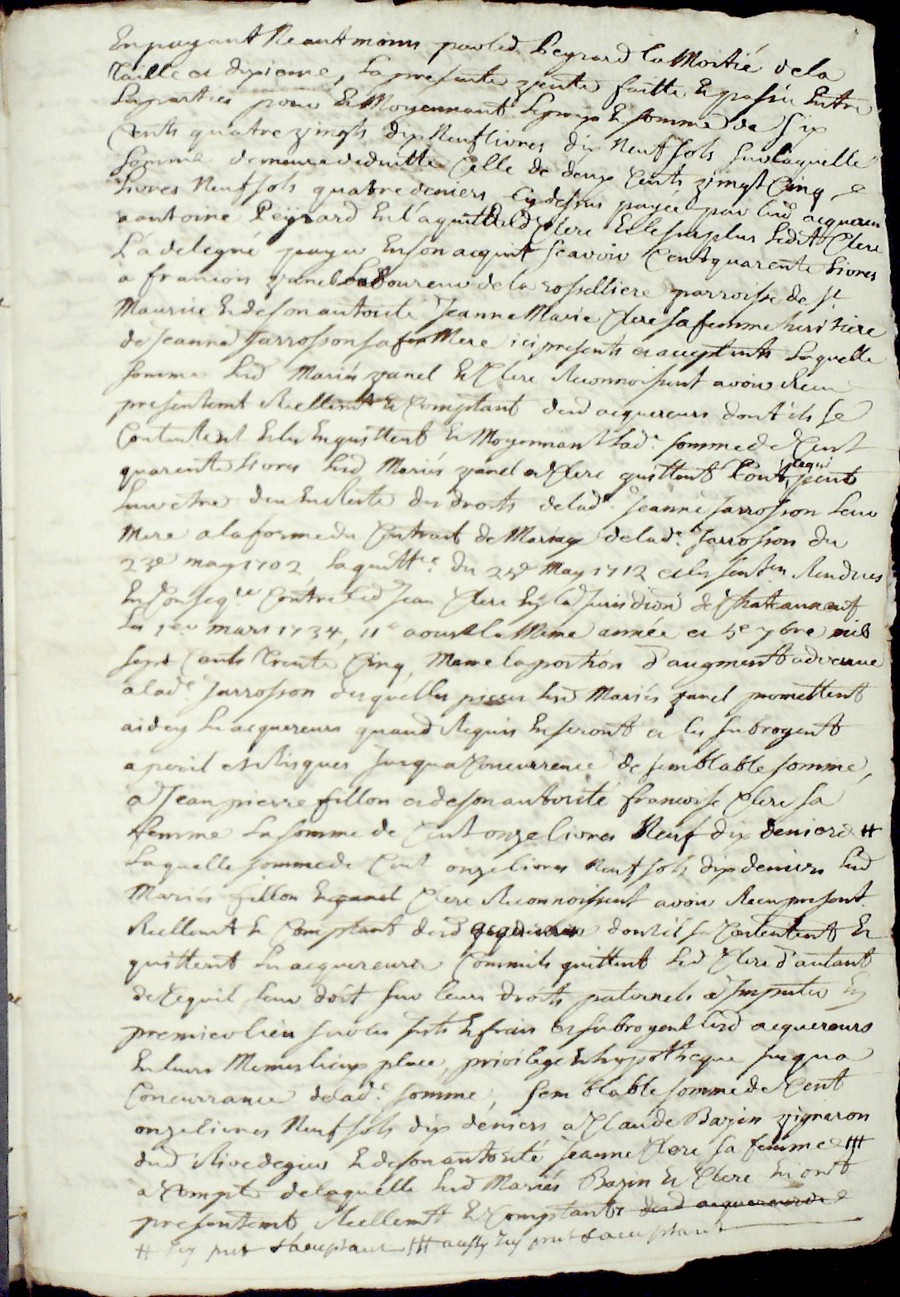 En payant Neantmoins par led. Peyrard la Moitié de la
taille et dixieme, La presente vente faitte et passée Entre
Les parties pour et Moyennant Le prix et somme de six
Cents quatre vingts dix Neuf livres dix Neuf sols sur laquelle
somme demeure deduitte Celle de deux Cents vingt Cinq
livres Neuf sols quatre deniers Cy dessus payée par lesd acquereurs
a antoine Peyrard En l'acquit dud Clere Et le surplus Ledit Clere
L'a delegué payer En son acquit scavoir Cent quarente livres
a francois Vanel Laboureur de la rosselliere parroisse de st
Maurice Et de son autorité Jeanne Marie Clere sa femme heritiere
de Jeanne Jarrosson sa feu Mere ici presents et acceptants Laquelle
somme Lesd Mariés Vanel Et Clere Reconnoissent avoir Receu
presentemt Reellemt et Comptant desd acquereurs dont ils se
Contentent Et les En quittent Et Moyennant lad. somme de Cent
quarente livres Lesd Mariés Vanel et Clere quittent tout ce qui peut
Leur etre deu En Reste des droits de lad. Jeanne Jarrosson Leur
Mere a la forme du Contrat de Mariage de lad. Jarrosson du
23e may 1702 La quittce. du 24e May 1712 et les senten Rendues
En Conseqce Contre led Jean Clere En la Jurisdion de Chateauneuf
Les 1er mars 1734, 11e aoust la Meme année et 5e 7bre mil
sept Cents Trente Cinq, Meme la portion d'augment advenue
a lad. Jarrosson desquelles pieces Lesd Mariés Vanel promettent
aider Les acquereurs quand Requis En seront et les subrogent
a peril et Risques Jusqua Concurrence de semblable somme,
a Jean pierre fillon et de son autorité francoise Clere sa
femme La somme de Cent onze livres Neuf dix deniers #
Laquelle somme de Cent onze livres Neuf sols dix deniers Lesd
Mariés fillon Et Clere Reconnoissent avoir Receu present
Reellemt Et Comptant desd acquereurs dont ils se Contentent Et
quittent Les acquereurs Comm'ils quittent Led Clere d'autant
de Ce quil leur doit sur leurs droits paternels a Imputer En
premier lieu sur les Ints Et frais Et subrogent Lesd acquereurs
En leurs Memes lieux place, privilege Et hypotheque Jusqua
Concurrance de lad. somme, semblable somme de Cent
onze livres Neuf sols dix deniers a Claude Bazin vigneron
dud Rivedegier Et de son autorité Jeanne Clere sa femme ##
a Compte de laquelle Lesd Mariés Bazin Et Clere En ont
presentemt Reellemt Et Comptant desd acquereurs
# Icy pnts & acceptant ## aussy Icy pnts & acceptant